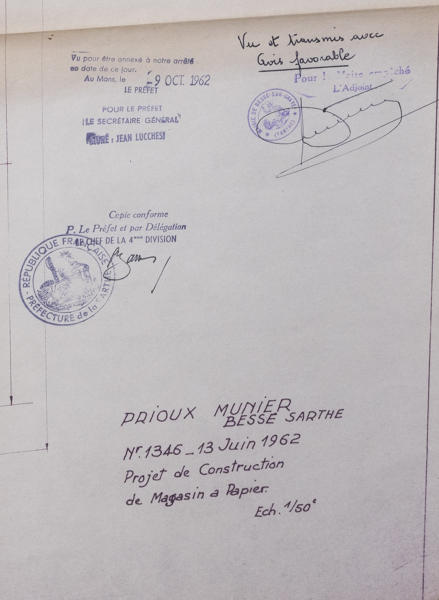 Vu pour être annexé à notre arrêté
en date de ce jour.
Au Mans, le 29 OCT. 1962
LE PRÉFET
POUR LE PRÉFET
LE SECRÉTAIRE GÉNÉRAL
SIGNÉ : JEAN LUCCHESI
Vu et transmis avec
Avis favorable
Pour l Maire empêché
L'Adjoint
MAIRIE DE BESSÉ-SUR-BRAYE
(SARTHE)
Copie conforme
P. Le Préfet et par Délégation
LE CHEF DE LA 4ème DIVISION
RÉPUBLIQUE FRANÇAISE
PRÉFECTURE de la SARTHE
PRIOUX MUNIER
BESSÉ SARTHE
Nr. 1346 _ 13 Juin 1962
Projet de Construction
de Magasin a Papier.
Ech. 1/50e